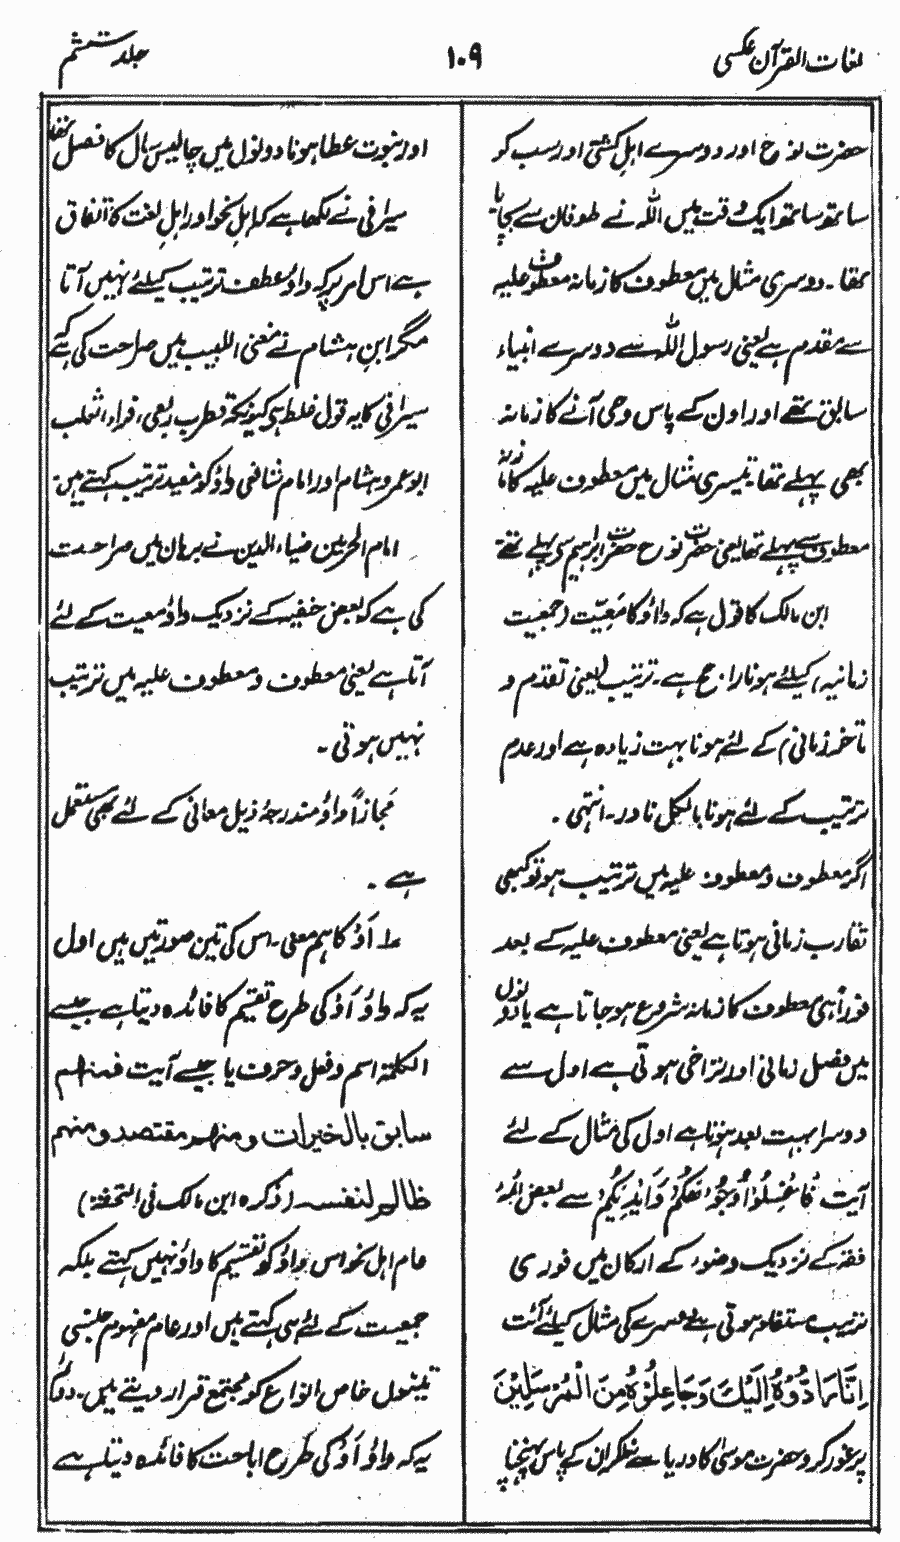 لغات القرآن عکسی
۱۰۹
جلد ششم
حضرت نوح اور دوسرے اہلِ کشتی اور سب کو
ساتھ ساتھ ایک وقت میں اللہ نے طوفان سے بچایا
تھا۔ دوسری مثال میں معطوف کا زمانہ معطوف علیہ
سے مقدم ہے یعنی رسول اللہ سے دوسرے انبیاء
سابق تھے اور اون کے پاس وحی آنے کا زمانہ
بھی پہلے تھا تیسری مثال میں معطوف علیہ کا زمانہ
معطوف سے پہلے تھا یعنی حضرت نوح حضرت ابراہیم سے پہلے تھے
ابن مالک کا قول ہے کہ واؤ کا مَعِیّت (جمعیت
زمانیہ) کیلئے ہونا راجح ہے۔ ترتیب یعنی تقدم و
تأخر زمانی) کے لئے ہونا بہت زیادہ ہے اور عدم
ترتیب کے لئے ہونا بالکل نادر۔ انتہی۔
اگر معطوف و معطوف علیہ میں ترتیب ہو تو کبھی
تقارب زمانی ہوتا ہے یعنی معطوف علیہ کے بعد
فوراً ہی معطوف کا زمانہ شروع ہو جاتا ہے یا دونوں
میں فصل زمانی اور تراخی ہوتی ہے اول سے
دوسرا بہت بعد ہوتا ہے اول کی مثال کے لئے
آیت فَاغْسِلُوْا وُجُوْهَكُمْ وَاَيْدِيَكُمْ سے بعض ائمہ
فقہ کے نزدیک وضوء کے ارکان میں فوری
ترتیب مستفاد ہوتی ہے دوسرے کی مثال کیلئے آیت
اِنَّا رَادُّوْهُ اِلَيْكَ وَجَاعِلُوْهُ مِنَ الْمُرْسَلِيْنَ
پر غور کرو حضرت موسیٰ کا دریا سے نکلکر ان کے پاس پہنچنا
اور نبوت عطا ہونا دونوں میں چالیس سال کا فصل تھا
سیرافی نے لکھا ہے کہ اہلِ نحو اور اہلِ لغت کا اتفاق
ہے اس امر پر کہ واؤ عطف ترتیب کیلئے نہیں آتا
مگر ابن ہشام نے مغنی اللبیب میں صراحت کی ہے کہ
سیرافی کا یہ قول غلط ہی کیونکہ قطرب ربعی، فراء، ثعلب
ابوعمرو ہشام اور امام شافعی واؤ کو مفید ترتیب کہتے ہیں۔
امام الحرمین ضیاء الدین نے برہان میں صراحت
کی ہے کہ بعض حنفیہ کے نزدیک واؤ معیت کے لئے
آتا ہے یعنی معطوف و معطوف علیہ میں ترتیب
نہیں ہوتی۔
مجازاً واؤ مندرجۂ ذیل معانی کے لئے بھی مستعمل
ہے۔
۱؎ اَوْ کا ہم معنی۔ اس کی تین صورتیں ہیں اول
یہ کہ واؤ اَوْ کی طرح تقسیم کا فائدہ دیتا ہے جیسے
الکلمۃ اسم و فعل و حرف یا جیسے آیت فمنھم
سابق بالخیرات و منھم مقتصد و منھم
ظالم لنفسہ (ذکرہ ابن مالک فی التحفۃ)
عام اہل نحو اس واؤ کو تقسیم کا واؤ نہیں کہتے بلکہ
جمعیت کے لئے ہی کہتے ہیں اور عام مفہوم جنسی
تینوں خاص انواع کو مجتمع قرار دیتے ہیں۔ دوم
یہ کہ واؤ اَوْ کی طرح اباحت کا فائدہ دیتا ہے